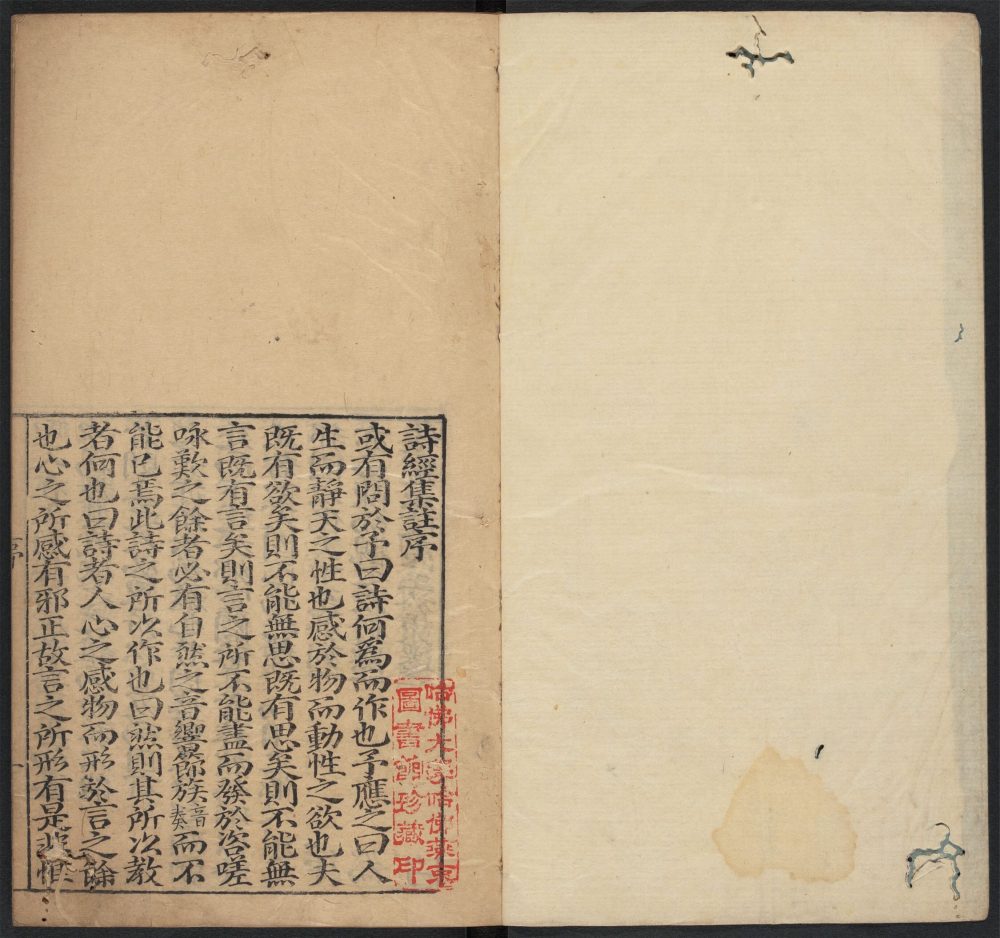 詩經集註序
或有問於予曰詩何爲而作也予應之曰人
生而靜天之性也感於物而動性之欲也夫
既有欲矣則不能無思既有思矣則不能無
言既有言矣則言之所不能盡而發於咨嗟
咏歎之餘者必有自然之音響節族音奏而不
能已焉此詩之所以作也曰然則其所以教
者何也曰詩者人心之感物而形於言之餘
也心之所感有邪正故言之所形有是非惟
序
一
哈佛大學哈佛燕京
圖書館珍藏印